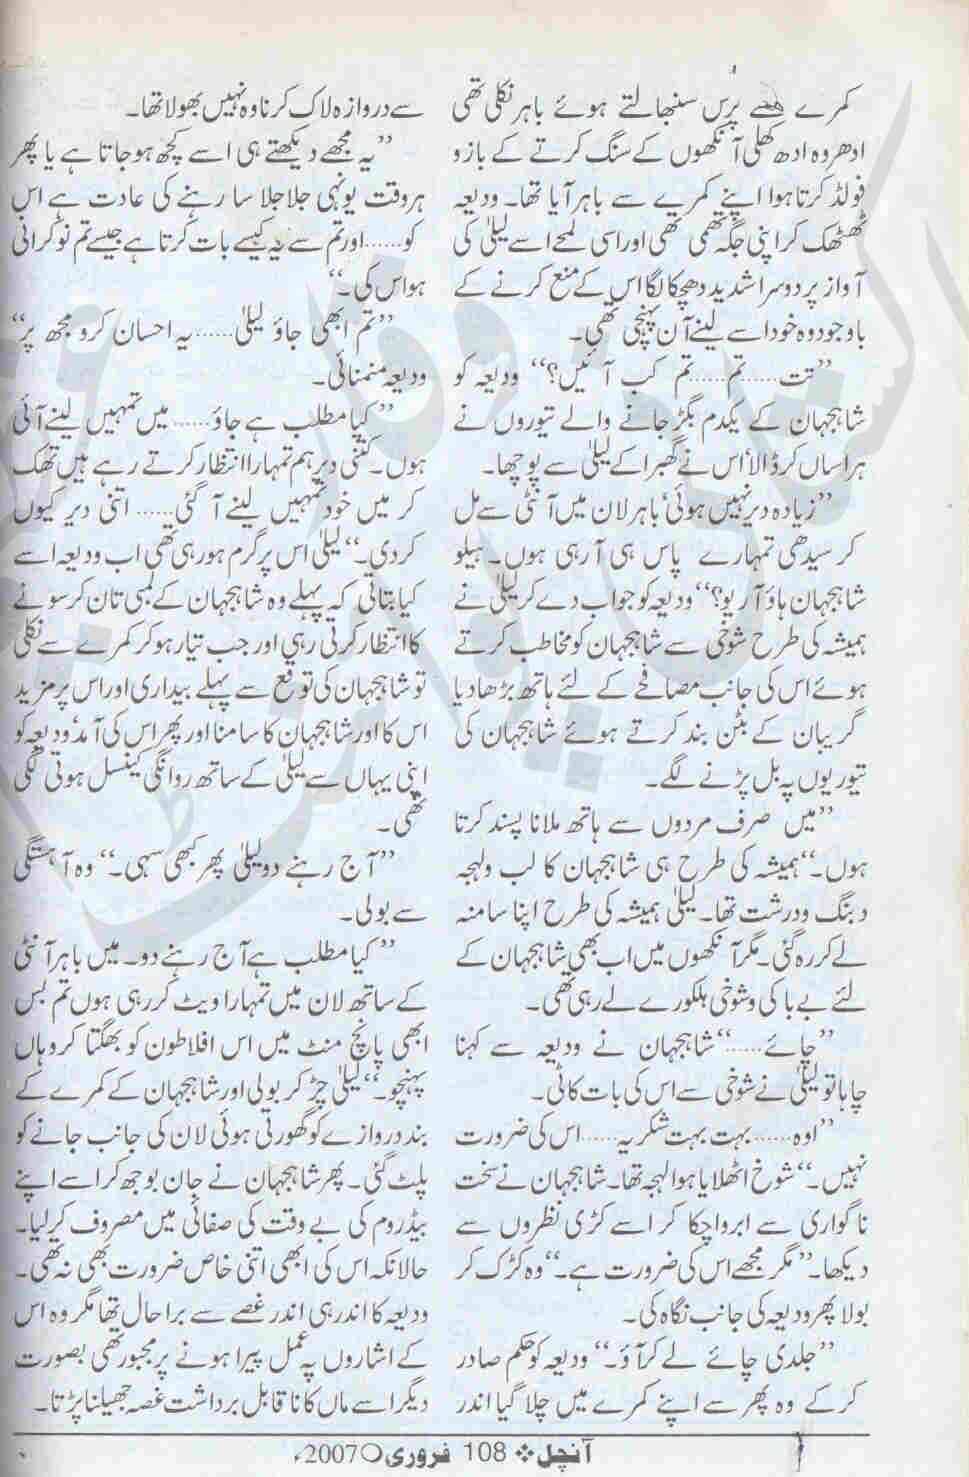 کمرے سے پرس سنبھالتے ہوئے باہر نکلی تھی
ادھر وہ ادھ کھلی آنکھوں کے سنگ کرتے کے بازو
فولڈ کرتا ہوا اپنے کمرے سے باہر آیا تھا۔ ودیعہ
ٹھٹھک کر اپنی جگہ تھمی تھی اور اسی لمحے اسے لیلیٰ کی
آواز پر دوسرا شدید دھچکا لگا اس کے منع کرنے کے
باوجود وہ خود اسے لینے آن پہنچی تھی۔
”تت..... تم...... تم کب آئیں؟“ ودیعہ کو
شاہجہان کے یکدم بگڑ جانے والے تیوروں نے
ہراساں کر ڈالا‘ اس نے گھبرا کے لیلیٰ سے پوچھا۔
”زیادہ دیر نہیں ہوئی‘ باہر لان میں آنٹی سے مل
کر سیدھی تمہارے پاس ہی آ رہی ہوں۔ ہیلو
شاہجہان ہاؤ آر یو؟“ ودیعہ کو جواب دے کر لیلیٰ نے
ہمیشہ کی طرح شوخی سے شاہجہان کو مخاطب کرتے
ہوئے اس کی جانب مصافحے کے لئے ہاتھ بڑھا دیا
گریبان کے بٹن بند کرتے ہوئے شاہجہان کی
تیوریوں پہ بل پڑنے لگے۔
”میں صرف مردوں سے ہاتھ ملانا پسند کرتا
ہوں۔“ ہمیشہ کی طرح ہی شاہجہان کا لب و لہجہ
دبنگ و درشت تھا۔ لیلیٰ ہمیشہ کی طرح اپنا سا منہ
لے کر رہ گئی۔ مگر آنکھوں میں اب بھی شاہجہان کے
لئے بے باکی و شوخی ہلکورے لے رہی تھی۔
”چائے......“ شاہجہان نے ودیعہ سے کہنا
چاہا تو لیلیٰ نے شوخی سے اس کی بات کاٹی۔
”اوہ...... بہت بہت شکریہ...... اس کی ضرورت
نہیں۔“ شوخ اٹھلایا ہوا لہجہ تھا۔ شاہجہان نے سخت
ناگواری سے ابرو اچکا کر اسے کڑی نظروں سے
دیکھا۔ ”مگر مجھے اس کی ضرورت ہے۔“ وہ کڑک کر
بولا پھر ودیعہ کی جانب نگاہ کی۔
”جلدی چائے لے کر آؤ۔“ ودیعہ کو حکم صادر
کر کے وہ پھر سے اپنے کمرے میں چلا گیا اندر
سے دروازہ لاک کرنا وہ نہیں بھولا تھا۔
”یہ مجھے دیکھتے ہی اسے کچھ ہو جاتا ہے یا پھر
ہر وقت یونہی جلا جلا سا رہنے کی عادت ہے اس
کو...... اور تم سے یہ کیسے بات کرتا ہے جیسے تم نوکرانی
ہو اس کی۔“
”تم ابھی جاؤ لیلیٰ...... یہ احسان کرو مجھ پر“
ودیعہ منمنائی۔
”کیا مطلب ہے جاؤ...... میں تمہیں لینے آئی
ہوں۔ کتنی دیر ہم تمہارا انتظار کرتے رہے ہیں تھک
کر میں خود تمہیں لینے آ گئی...... اتنی دیر کیوں
کر دی۔“ لیلیٰ اس پر گرم ہو رہی تھی اب ودیعہ اسے
کیا بتاتی کہ پہلے وہ شاہجہان کے لمبی تان کر سونے
کا انتظار کرتی رہی اور جب تیار ہو کر کمرے سے نکلی
تو شاہجہان کی توقع سے پہلے بیداری اور اس پر مزید
اس کا اور شاہجہان کا سامنا اور پھر اس کی آمد‘ ودیعہ کو
اپنی یہاں سے لیلیٰ کے ساتھ روانگی کینسل ہوتی لگی
تھی۔
”آج رہنے دو لیلیٰ پھر کبھی سہی۔“ وہ آہستگی
سے بولی۔
”کیا مطلب ہے آج رہنے دو۔ میں باہر آنٹی
کے ساتھ لان میں تمہارا ویٹ کر رہی ہوں تم بس
ابھی پانچ منٹ میں اس افلاطون کو بھگتا کر وہاں
پہنچو۔“ لیلیٰ چڑ کر بولی اور شاہجہان کے کمرے کے
بند دروازے کو گھورتی ہوئی لان کی جانب جانے کو
پلٹ گئی۔ پھر شاہجہان نے جان بوجھ کر اسے اپنے
بیڈروم کی بے وقت کی صفائی میں مصروف کر لیا۔
حالانکہ اس کی ابھی اتنی خاص ضرورت بھی نہ تھی۔
ودیعہ کا اندر ہی اندر غصے سے برا حال تھا مگر وہ اس
کے اشاروں پہ عمل پیرا ہونے پر مجبور تھی بصورت
دیگر اسے ماں کا ناقابل برداشت غصہ جھیلنا پڑتا۔
آنچل ❖ 108 فروری ○ 2007ء